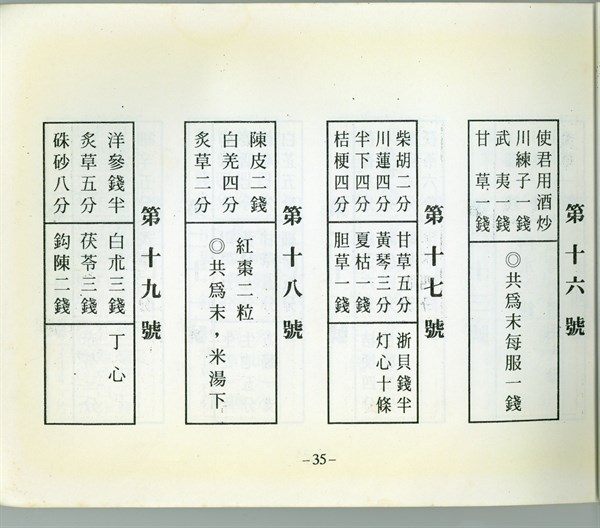 第十六號
使君用酒炒
川練子一錢
武夷一錢
甘草一錢
◎共爲末每服一錢
第十七號
柴胡二分
川蓮四分
半下四分
桔梗四分
甘草五分
黃琴三分
夏枯一錢
胆草一錢
浙貝錢半
灯心十條
第十八號
陳皮二錢
白羌四分
炙草二分
紅棗二粒
◎共爲末，米湯下
第十九號
洋參錢半
炙草五分
硃砂八分
白朮三錢
茯苓三錢
鈎陳二錢
丁心
-35-